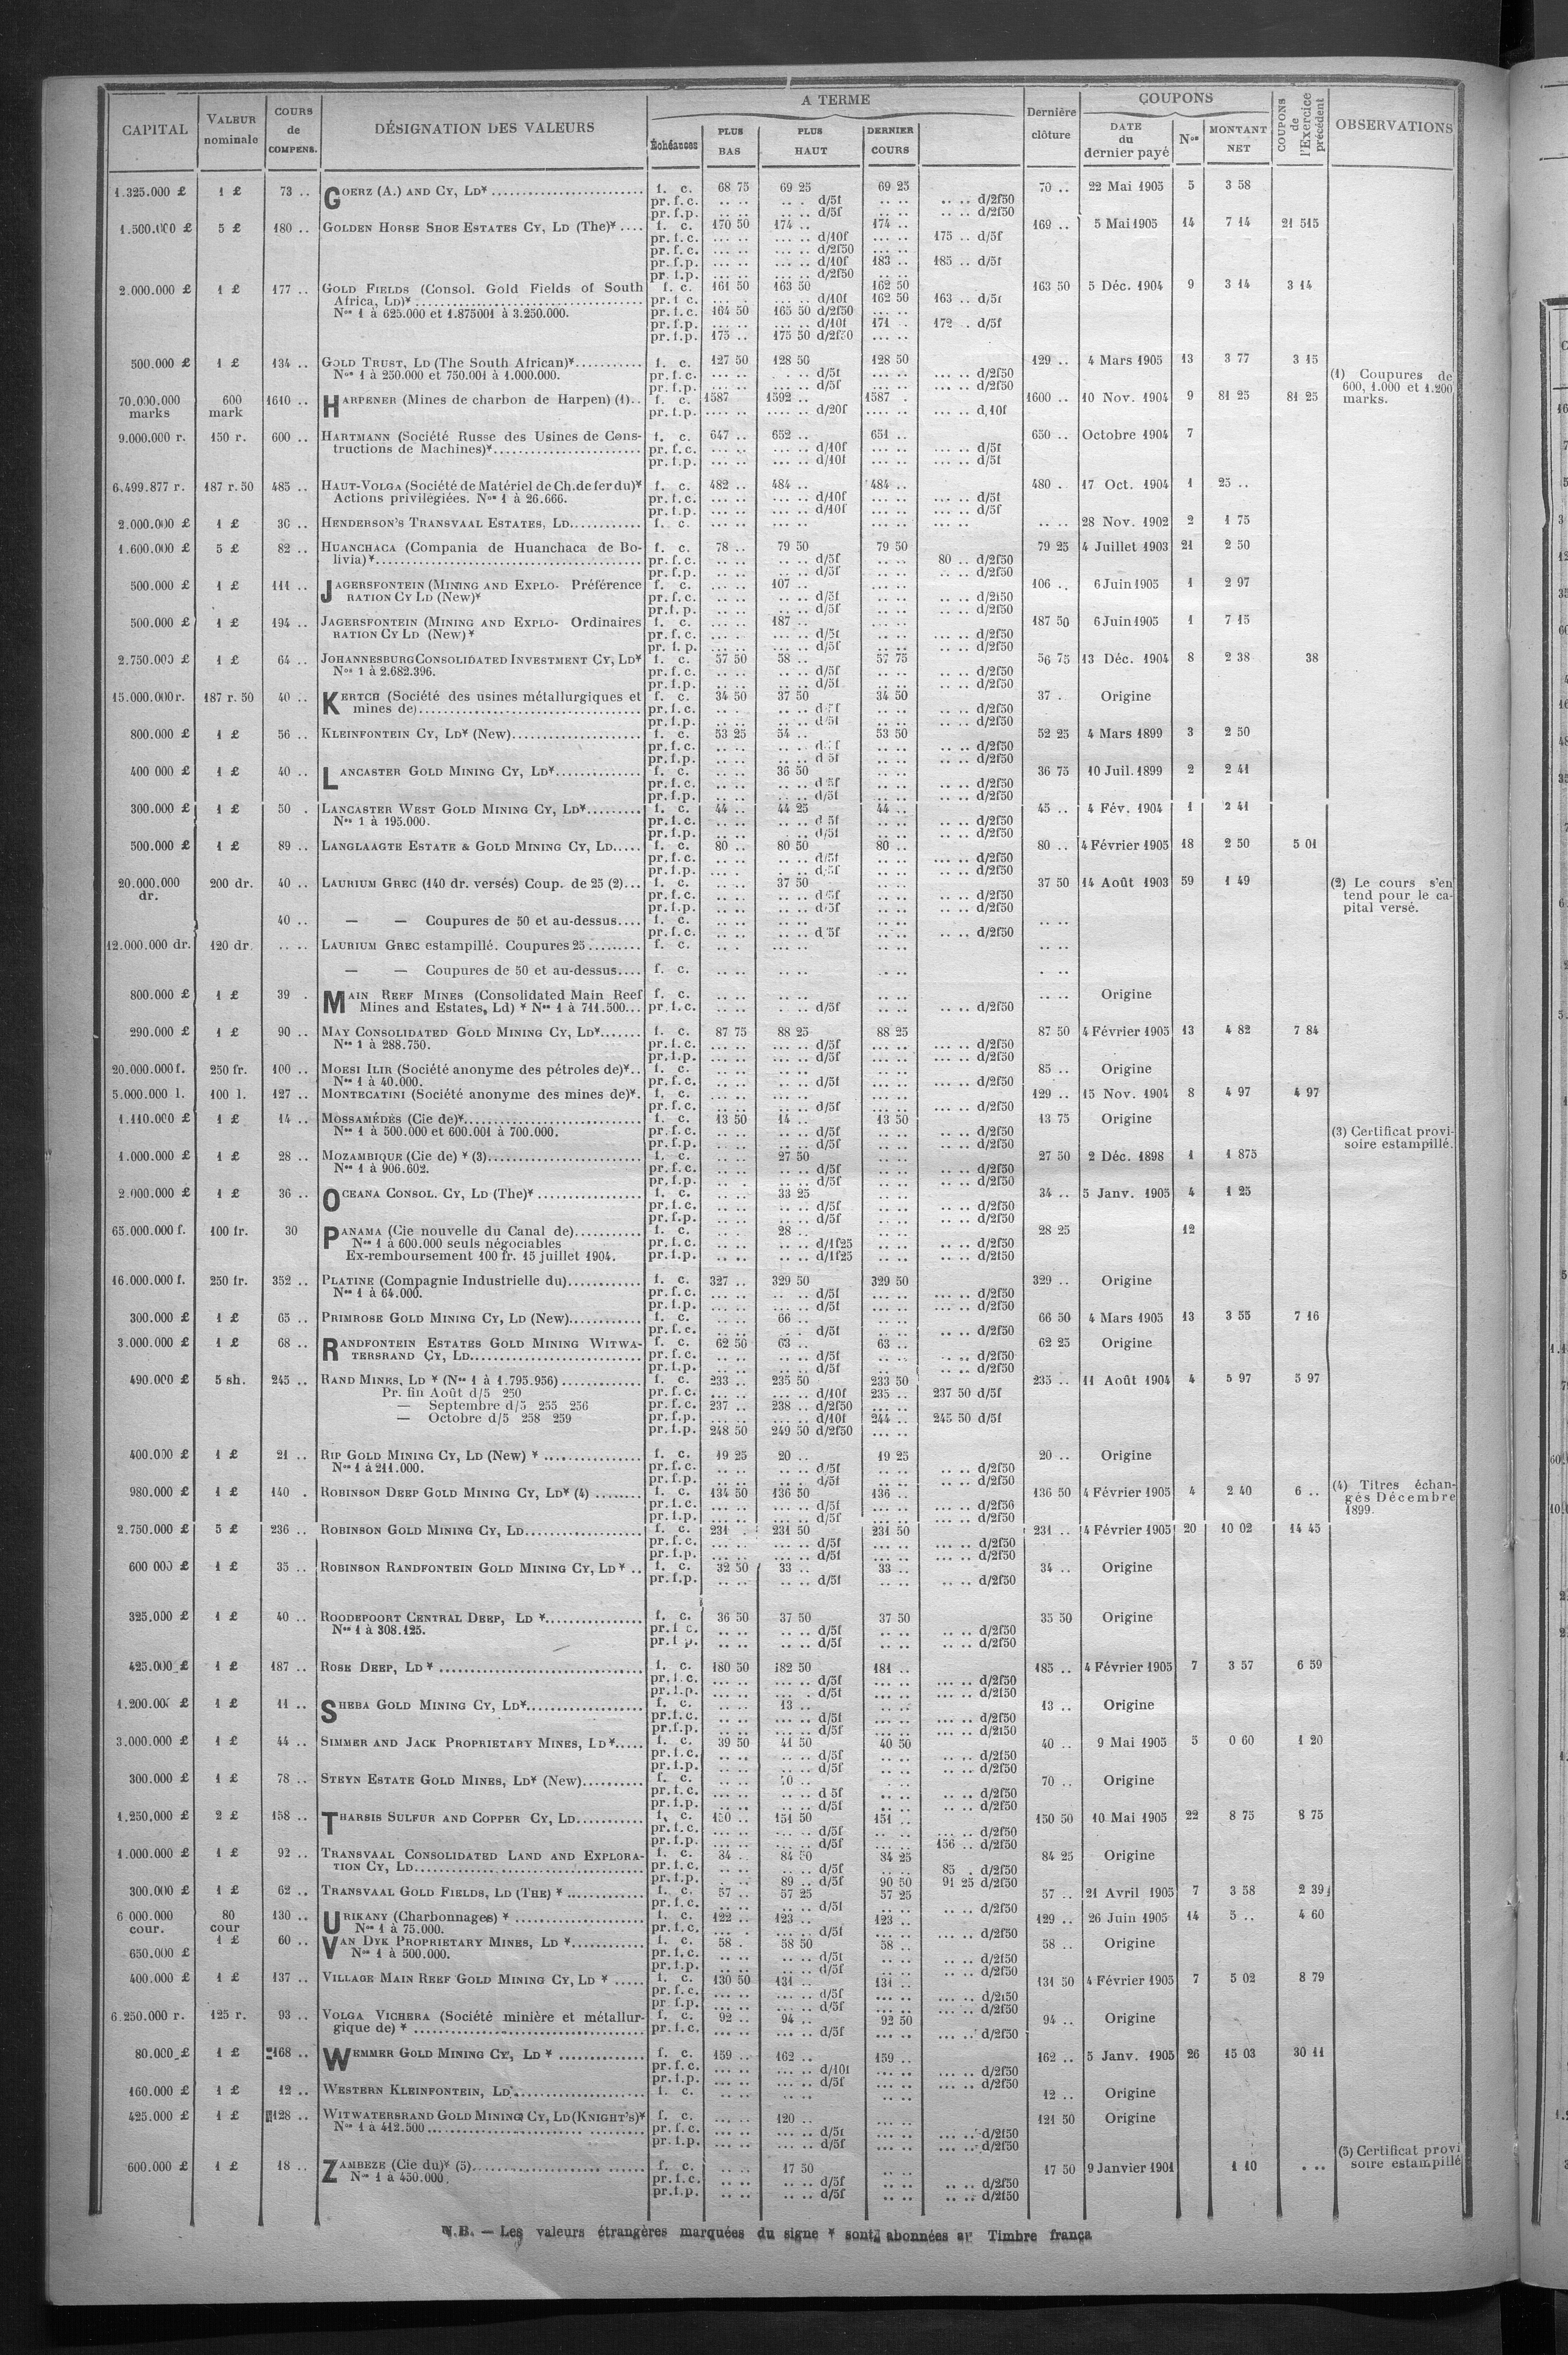 CAPITAL | VALEUR nominale | COURS de COMPENS. | DÉSIGNATION DES VALEURS | A TERME | Échéances | PLUS BAS | PLUS HAUT | DERNIER COURS | Dernière clôture | COUPONS | DATE du dernier payé | Nos | MONTANT NET | COUPONS de l'Exercice précédent | OBSERVATIONS
1.325.000 £ | 1 £ | 73 .. | GOERZ (A.) AND CY, LD* | f. c. | 68 75 | 69 25 | 69 25 | 70 .. | 22 Mai 1905 | 5 | 3 58
pr.f.c. | .. .. | .. . d/5f | .. .. | .. .. d/2f50
pr.f.p. | .. .. | .. .. d/5f | .. .. | .. .. d/2f50
1.500.000 £ | 5 £ | 180 .. | GOLDEN HORSE SHOE ESTATES CY, LD (The)* .... | f. c. | 170 50 | 174 .. | 174 .. | 169 .. | 5 Mai 1905 | 14 | 7 14 | 21 515
pr.f.c. | ... .. | ... .. d/10f | ... .. | 175 .. d/5f
pr.f.c. | ... .. | ... .. d/2f50 | ... ..
pr.f.p. | ... .. | ... .. d/10f | 183 .. | 185 .. d/5f
pr.f.p. | ... .. | ... .. d/2f50 | ... ..
2.000.000 £ | 1 £ | 177 .. | GOLD FIELDS (Consol. Gold Fields of South | f. c. | 161 50 | 163 50 | 162 50 | 163 50 | 5 Déc. 1904 | 9 | 3 14 | 3 14
Africa, LD)* | pr.f.c. | ... .. | ... .. d/10f | 162 50 | 163 .. d/5f
Nos 1 à 625.000 et 1.875001 à 3.250.000. | pr.f.c. | 164 50 | 165 50 d/2f50 | ... ..
pr.f.p. | ... .. | ... .. d/10f | 171 .. | 172 . d/5f
pr.f.p. | 175 .. | 175 50 d/2f50 | ... ..
500.000 £ | 1 £ | 134 .. | GOLD TRUST, LD (The South African)* | f. c. | 127 50 | 128 50 | 128 50 | 129 .. | 4 Mars 1905 | 13 | 3 77 | 3 15
Nos 1 à 250.000 et 750.001 à 1.000.000. | pr.f.c. | d/5f | d/2f50 | (1) Coupures de
pr.f.p. | d/5f | d/2f50 | 600, 1.000 et 1.200
70.000.000 marks | 600 mark | 1610 .. | HARPENER (Mines de charbon de Harpen) (1).. | f. c. | 1587 | 1592 .. | 1587 . | 1600 .. | 10 Nov. 1904 | 9 | 81 25 | 81 25 | marks.
pr.f.p. | d/20f | d,10f
9.000.000 r. | 150 r. | 600 .. | HARTMANN (Société Russe des Usines de Cons- | f. c. | 647 .. | 652 .. | 651 .. | 650 .. | Octobre 1904 | 7
tructions de Machines)* | pr.f.c. | d/10f | d/5f
pr.f.p. | d/10f | d/5f
6.499.877 r. | 187 r. 50 | 485 .. | HAUT-VOLGA (Société de Matériel de Ch. de fer du)* | f. c. | 482 .. | 484 .. | 484 .. | 480 . | 17 Oct. 1904 | 1 | 25 ..
Actions privilégiées. Nos 1 à 26.666. | pr.f.c. | d/10f | d/5f
pr.f.p. | d/10f | d/5f
2.000.000 £ | 1 £ | 30 .. | HENDERSON'S TRANSVAAL ESTATES, LD | f. c. | ... .. | ... .. | ... .. | .. .. | 28 Nov. 1902 | 2 | 1 75
1.600.000 £ | 5 £ | 82 .. | HUANCHACA (Compania de Huanchaca de Bo- | f. c. | 78 .. | 79 50 | 79 50 | 79 25 | 4 Juillet 1903 | 21 | 2 50
livia)* | pr.f.c. | d/5f | 80 .. d/2f50
pr.f.p. | d/5f | d/2f50
500.000 £ | 1 £ | 111 .. | JAGERSFONTEIN (MINING AND EXPLO- Préférence | f. c. | 107 .. | 106 .. | 6 Juin 1905 | 1 | 2 97
RATION CY LD (New)* | pr.f.c. | d/5f | d/2f50
pr.f.p. | d/5f | d/2f50
500.000 £ | 1 £ | 194 .. | JAGERSFONTEIN (MINING AND EXPLO- Ordinaires | f. c. | 187 .. | 187 50 | 6 Juin 1905 | 1 | 7 15
RATION CY LD (New)* | pr.f.c. | d/5f | d/2f50
pr.f.p. | d/5f | d/2f50
2.750.000 £ | 1 £ | 64 .. | JOHANNESBURG CONSOLIDATED INVESTMENT CY, LD* | f. c. | 57 50 | 58 .. | 57 75 | 56 75 | 13 Déc. 1904 | 8 | 2 38 | 38
Nos 1 à 2.682.396. | pr.f.c. | d/5f | d/2f50
pr.f.p. | d/5f | d/2f50
15.000.000 r. | 187 r. 50 | 40 .. | KERTCH (Société des usines métallurgiques et | f. c. | 34 50 | 37 50 | 34 50 | 37 . | Origine
mines de) | pr.f.c. | d/5f | d/2f50
pr.f.p. | d/5f | d/2f50
800.000 £ | 1 £ | 56 .. | KLEINFONTEIN CY, LD* (New) | f. c. | 53 25 | 54 .. | 53 50 | 52 25 | 4 Mars 1899 | 3 | 2 50
pr.f.c. | d/2f50
pr.f.p. | d 5f | d/2f50
400 000 £ | 1 £ | 40 .. | LANCASTER GOLD MINING CY, LD* | f. c. | 36 50 | 36 75 | 10 Juil. 1899 | 2 | 2 41
pr.f.c. | d/5f | d/2f50
pr.f.p. | d/5f | d/2f50
300.000 £ | 1 £ | 50 . | LANCASTER WEST GOLD MINING CY, LD* | f. c. | 44 .. | 44 25 | 44 .. | 45 .. | 4 Fév. 1904 | 1 | 2 41
Nos 1 à 195.000. | pr.f.c. | d 5f | d/2f50
pr.f.p. | d/5f | d/2f50
500.000 £ | 1 £ | 89 .. | LANGLAAGTE ESTATE & GOLD MINING CY, LD..... | f. c. | 80 .. | 80 50 | 80 .. | 80 .. | 4 Février 1905 | 18 | 2 50 | 5 01
pr.f.c. | d/5f | d/2f50
pr.f.p. | d/5f | d/2f50
20.000.000 dr. | 200 dr. | 40 .. | LAURIUM GREC (140 dr. versés) Coup. de 25 (2)... | f. c. | 37 50 | 37 50 | 14 Août 1903 | 59 | 1 49 | (2) Le cours s'en
pr.f.c. | d/5f | d/2f50 | tend pour le ca-
pr.f.p. | d/5f | d/2f50 | pital versé.
40 .. | — — Coupures de 50 et au-dessus.... | f. c. | .. ..
pr.f.c. | d/5f | d/2f50
12.000.000 dr. | 120 dr. | .. .. | LAURIUM GREC estampillé. Coupures 25 | f. c. | .. ..
— — Coupures de 50 et au-dessus.... | f. c. | . ..
800.000 £ | 1 £ | 39 . | MAIN REEF MINES (Consolidated Main Reef | f. c. | .. .. | Origine
Mines and Estates, Ld) * Nos 1 à 711.500... | pr.f.c. | d/5f | d/2f50
290.000 £ | 1 £ | 90 .. | MAY CONSOLIDATED GOLD MINING CY, LD* | f. c. | 87 75 | 88 25 | 88 25 | 87 50 | 4 Février 1905 | 13 | 4 82 | 7 84
Nos 1 à 288.750. | pr.f.c. | d/5f | d/2f50
pr.f.p. | d/5f | d/2f50
20.000.000 f. | 250 fr. | 100 .. | MOESI ILIR (Société anonyme des pétroles de)*.. | f. c. | 85 .. | Origine
Nos 1 à 40.000. | pr.f.c. | d/5f | d/2f50
5.000.000 l. | 100 l. | 127 .. | MONTECATINI (Société anonyme des mines de)*. | f. c. | 129 .. | 15 Nov. 1904 | 8 | 4 97 | 4 97
pr.f.c. | d/5f | d/2f50
1.110.000 £ | 1 £ | 14 .. | MOSSAMÉDÈS (Cie de)* | f. c. | 13 50 | 14 .. | 13 50 | 13 75 | Origine
Nos 1 à 500.000 et 600.001 à 700.000. | pr.f.c. | d/5f | d/2f50 | (3) Certificat provi-
pr.f.p. | d/5f | d/2f50 | soire estampillé.
1.000.000 £ | 1 £ | 28 .. | MOZAMBIQUE (Cie de) * (3) | f. c. | 27 50 | 27 50 | 2 Déc. 1898 | 1 | 1 875
Nos 1 à 906.602. | pr.f.c. | d/5f | d/2f50
pr.f.p. | d/5f | d/2f50
2.000.000 £ | 1 £ | 36 .. | OCEANA CONSOL. CY, LD (The)* | f. c. | 33 25 | 34 .. | 5 Janv. 1905 | 4 | 1 25
pr.f.c. | d/5f | d/2f50
pr.f.p. | d/5f | d/2f50
65.000.000 f. | 100 fr. | 30 | PANAMA (Cie nouvelle du Canal de) | f. c. | 28 .. | 28 25 | 12
Nos 1 à 600.000 seuls négociables | pr.f.c. | d/1f25 | d/2f50
Ex-remboursement 100 fr. 15 juillet 1904. | pr.f.p. | d/1f25 | d/2f50
16.000.000 f. | 250 fr. | 352 .. | PLATINE (Compagnie Industrielle du) | f. c. | 327 .. | 329 50 | 329 50 | 329 .. | Origine
Nos 1 à 64.000. | pr.f.c. | d/5f | d/2f50
pr.f.p. | d/5f | d/2f50
300.000 £ | 1 £ | 65 .. | PRIMROSE GOLD MINING CY, LD (New) | f. c. | 66 .. | 66 50 | 4 Mars 1905 | 13 | 3 55 | 7 16
pr.f.c. | d/5f | d/2f50
3.000.000 £ | 1 £ | 68 .. | RANDFONTEIN ESTATES GOLD MINING WITWA- | f. c. | 62 50 | 63 .. | 63 .. | 62 25 | Origine
TERSRAND CY, LD | pr.f.c. | d/5f | d/2f50
pr.f.p. | d/5f | d/2f50
490.000 £ | 5 sh. | 245 .. | RAND MINES, LD * (Nos 1 à 1.795.956) | f. c. | 233 .. | 235 50 | 233 50 | 235 .. | 11 Août 1904 | 4 | 5 97 | 5 97
Pr. fin Août d/5 250 | pr.f.c. | ... .. | ... .. d/10f | 235 .. | 237 50 d/5f
— Septembre d/5 255 256 | pr.f.c. | 237 .. | 238 .. d/2f50 | ... ..
— Octobre d/5 258 259 | pr.f.p. | ... .. | ... .. d/10f | 244 .. | 245 50 d/5f
pr.f.p. | 248 50 | 249 50 d/2f50 | ... ..
400.000 £ | 1 £ | 21 .. | RIP GOLD MINING CY, LD (New) * | f. c. | 19 25 | 20 .. | 19 25 | 20 .. | Origine
Nos 1 à 211.000. | pr.f.c. | d/5f | d/2f50
pr.f.p. | d/5f | d/2f50
980.000 £ | 1 £ | 140 . | ROBINSON DEEP GOLD MINING CY, LD* (4) | f. c. | 134 50 | 136 50 | 136 .. | 136 50 | 4 Février 1905 | 4 | 2 40 | 6 .. | (4) Titres échan-
pr.f.c. | d/5f | d/2f50 | gés Décembre
pr.f.p. | d/5f | d/2f50 | 1899.
2.750.000 £ | 5 £ | 236 .. | ROBINSON GOLD MINING CY, LD | f. c. | 231 . | 231 50 | 231 50 | 231 .. | 4 Février 1905 | 20 | 10 02 | 14 45
pr.f.c. | d/5f | d/2f50
pr.f.p. | d/5f | d/2f50
600 000 £ | 1 £ | 35 .. | ROBINSON RANDFONTEIN GOLD MINING CY, LD * .. | f. c. | 32 50 | 33 .. | 33 .. | 34 .. | Origine
pr.f.p. | d/5f | d/2f50
325.000 £ | 1 £ | 40 .. | ROODEPOORT CENTRAL DEEP, LD * | f. c. | 36 50 | 37 50 | 37 50 | 35 50 | Origine
Nos 1 à 308.125. | pr.f.c. | d/5f | d/2f50
pr.f.p. | d/5f | d/2f50
425.000 £ | 1 £ | 187 .. | ROSE DEEP, LD * | f. c. | 180 50 | 182 50 | 181 .. | 185 .. | 4 Février 1905 | 7 | 3 57 | 6 59
pr.f.c. | d/5f | d/2f50
pr.f.p. | d/5f | d/2f50
1.200.000 £ | 1 £ | 11 .. | SHEBA GOLD MINING CY, LD* | f. c. | 13 .. | 13 .. | Origine
pr.f.c. | d/5f | d/2f50
pr.f.p. | d/5f | d/2f50
3.000.000 £ | 1 £ | 44 .. | SIMMER AND JACK PROPRIETARY MINES, LD*..... | f. c. | 39 50 | 41 50 | 40 50 | 40 .. | 9 Mai 1905 | 5 | 0 60 | 1 20
pr.f.c. | d/5f | d/2f50
pr.f.p. | d/5f | d/2f50
300.000 £ | 1 £ | 78 .. | STEYN ESTATE GOLD MINES, LD* (New) | f. c. | 70 .. | Origine
pr.f.c. | d 5f | d/2f50
pr.f.p. | d/5f | d/2f50
1,250,000 £ | 2 £ | 158 .. | THARSIS SULFUR AND COPPER CY, LD | f. c. | 150 .. | 151 50 | 151 .. | 150 50 | 10 Mai 1905 | 22 | 8 75 | 8 75
pr.f.c. | d/5f | d/2f50
pr.f.p. | d/5f | 156 .. d/2f50
1.000.000 £ | 1 £ | 92 .. | TRANSVAAL CONSOLIDATED LAND AND EXPLORA- | f. c. | 84 .. | 84 50 | 84 25 | 84 25 | Origine
TION CY, LD | pr.f.c. | d/5f | 85 . d/2f50
pr.f.p. | 89 .. d/5f | 90 50 | 91 25 d/2f50
300.000 £ | 1 £ | 62 .. | TRANSVAAL GOLD FIELDS, LD (THE) * | f. c. | 57 .. | 57 25 | 57 25 | 57 .. | 21 Avril 1905 | 7 | 3 58 | 2 39
pr.f.c. | d/5f | d/2f50
6 000.000 cour. | 80 cour | 130 .. | URIKANY (Charbonnages) * | f. c. | 122 .. | 123 .. | 123 .. | 129 .. | 26 Juin 1905 | 14 | 5 .. | 4 60
Nos 1 à 75.000. | pr.f.c. | d/5f | d/2f50
650.000 £ | 1 £ | 60 .. | VAN DYK PROPRIETARY MINES, LD * | f. c. | 58 . | 58 50 | 58 .. | 58 .. | Origine
Nos 1 à 500.000. | pr.f.c. | d/5f | d/2f50
pr.f.p. | d/5f | d/2f50
400.000 £ | 1 £ | 137 .. | VILLAGE MAIN REEF GOLD MINING CY, LD * ..... | f. c. | 130 50 | 131 .. | 131 .. | 131 50 | 4 Février 1905 | 7 | 5 02 | 8 79
pr.f.c. | d/5f | d/2f50
pr.f.p. | d/5f | d/2f50
6.250.000 r. | 125 r. | 93 .. | VOLGA VICHERA (Société minière et métallur- | f. c. | 92 .. | 94 .. | 92 50 | 94 .. | Origine
gique de) * | pr.f.c. | d/5f | d/2f50
80.000 £ | 1 £ | 168 .. | WEMMER GOLD MINING CY, LD * | f. c. | 159 .. | 162 .. | 159 .. | 162 .. | 5 Janv. 1905 | 26 | 15 03 | 30 11
pr.f.c. | d/10f | d/2f50
pr.f.p. | d/5f | d/2f50
160.000 £ | 1 £ | 12 .. | WESTERN KLEINFONTEIN, LD | f. c. | 12 .. | Origine
425.000 £ | 1 £ | 128 .. | WITWATERSRAND GOLD MINING CY, LD (KNIGHT'S)* | f. c. | 120 .. | 121 50 | Origine
Nos 1 à 412.500 | pr.f.c. | d/5f | d/2f50
pr.f.p. | d/5f | d/2f50
600.000 £ | 1 £ | 18 .. | ZAMBEZE (Cie du)* (5) | f. c. | 17 50 | 17 50 | 9 Janvier 1901 | 1 10 | . .. | (5) Certificat provi
Nos 1 à 450.000. | pr.f.c. | d/5f | d/2f50 | soire estampillé
pr.f.p. | d/5f | d/2f50
N.B. — Les valeurs étrangères marquées du signe * sont abonnées Timbre frança